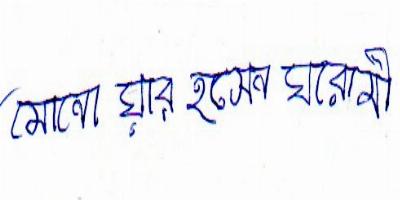 মোনো য়ার হুসেন ঘরামী